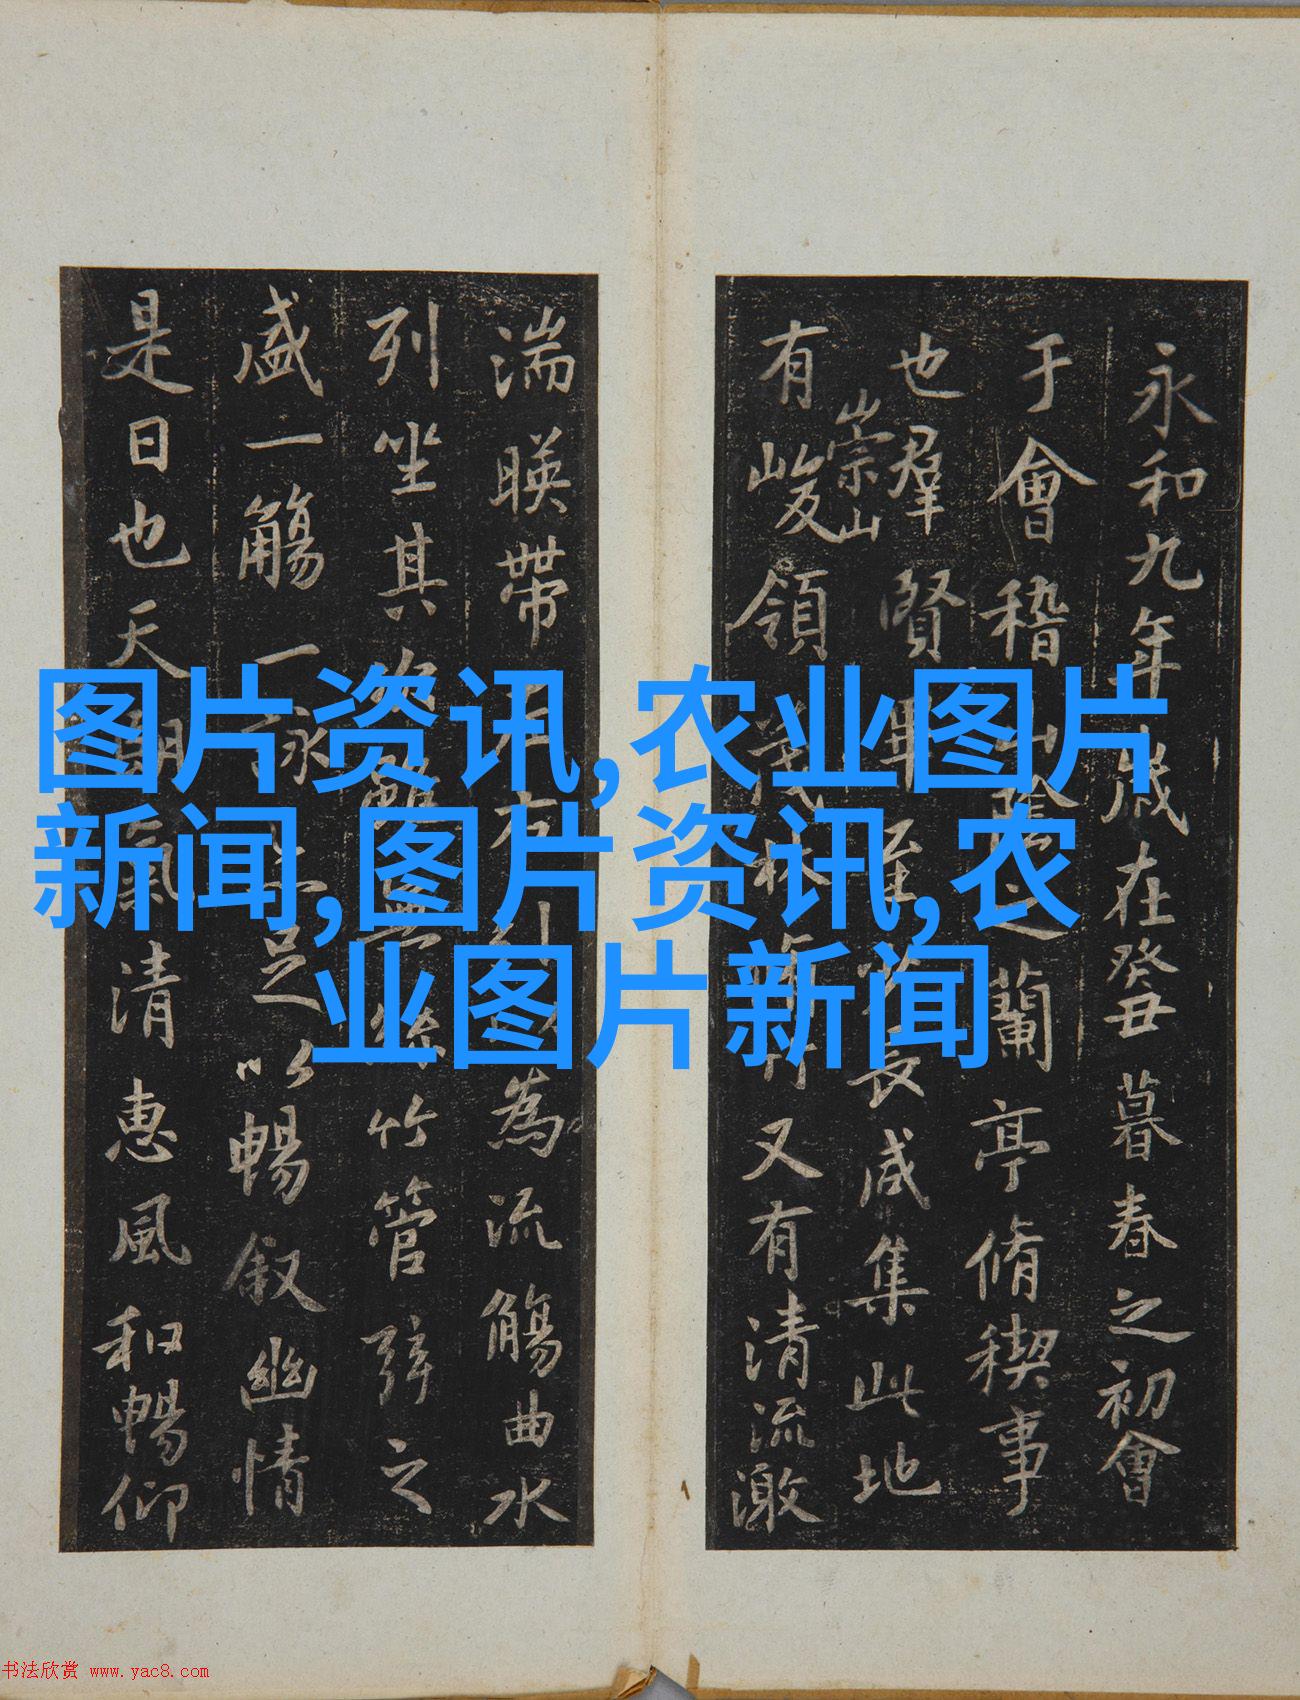 永和九年歲在癸丑暮春之初會
于會稽山陰之蘭亭脩禊事
也羣賢畢至少長咸集此地
崇山
有峻領茂林脩竹又有清流激
湍暎帶左右引以為流觴曲水
列坐其次雖無絲竹管弦之
盛一觴一詠亦足以暢叙幽情
是日也天朗氣清惠風和暢仰
图片资讯,农业图片
新闻,图片资讯,农
业图片新闻
书法欣赏 www.yac8.com